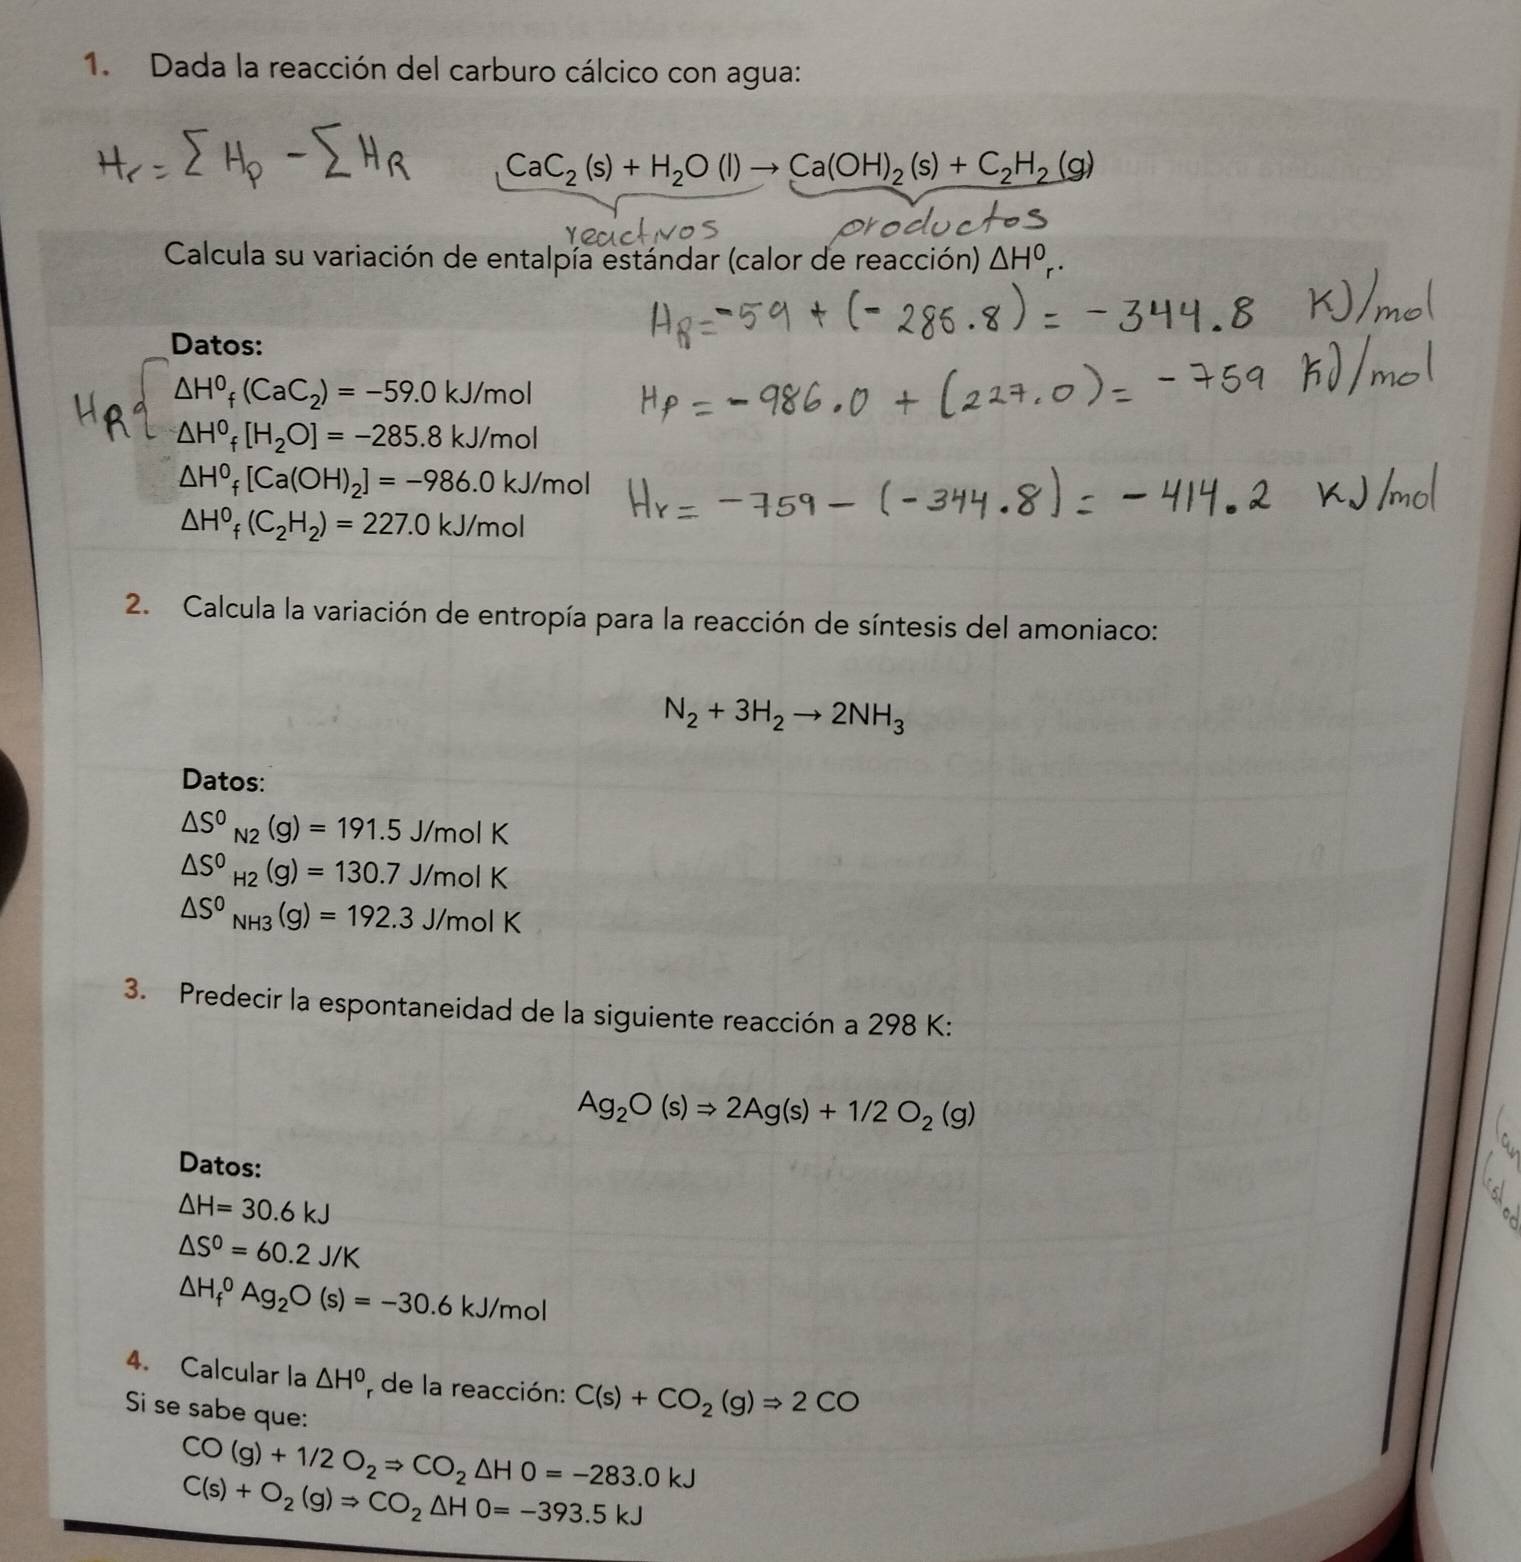 1. Dada la reacción del carburo cálcico con agua:
Hr = Σ Hp - Σ HR
CaC₂ (s) + H₂O (l) → Ca(OH)₂ (s) + C₂H₂ (g)
reactivos productos
Calcula su variación de entalpía estándar (calor de reacción) ΔH⁰r.
HR = -59 + (-285.8) = -344.8 KJ/mol
Datos:
ΔH⁰f (CaC₂) = −59.0 kJ/mol
Hp = -986.0 + (227.0) = -759 KJ/mol
HR {
ΔH⁰f [H₂O] = −285.8 kJ/mol
ΔH⁰f [Ca(OH)₂] = −986.0 kJ/mol
Hr = -759 - (-344.8) = -414.2 KJ/mol
ΔH⁰f (C₂H₂) = 227.0 kJ/mol
2. Calcula la variación de entropía para la reacción de síntesis del amoniaco:
N₂ + 3H₂ → 2NH₃
Datos:
ΔS⁰ N2 (g) = 191.5 J/mol K
ΔS⁰ H2 (g) = 130.7 J/mol K
ΔS⁰ NH3 (g) = 192.3 J/mol K
3. Predecir la espontaneidad de la siguiente reacción a 298 K:
Ag₂O (s) ⇒ 2Ag(s) + 1/2 O₂ (g)
Datos:
ΔH= 30.6 kJ
ΔS⁰ = 60.2 J/K
ΔHf⁰ Ag₂O (s) = −30.6 kJ/mol
4. Calcular la ΔH⁰r de la reacción: C(s) + CO₂ (g) ⇒ 2 CO
Si se sabe que:
CO (g) + 1/2 O₂ ⇒ CO₂ ΔH 0 = −283.0 kJ
C(s) + O₂ (g) ⇒ CO₂ ΔH 0= −393.5 kJ